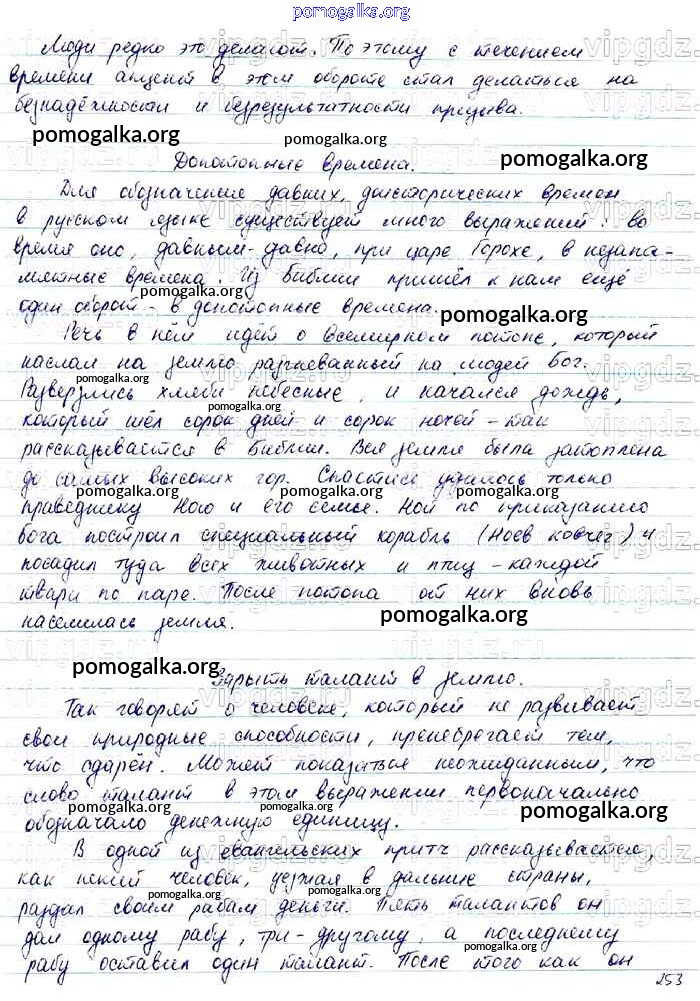 pomogalka.org
Люди редко это делают. По этому с течением
времени акцент в этом обороте стал делаться на
безнадёжности и безрезультатности призыва.
pomogalka.org pomogalka.org pomogalka.org
Допотопные времена.
Для обозначения давних, доисторических времен
в русском языке существует много выражений: во
время оно, давным-давно, при царе Горохе, в незапа-
мятные времена. Из Библии пришёл к нам ещё
pomogalka.org
один оборот - в допотопные времена.
pomogalka.org
Речь в нём идёт о всемирном потопе, который
наслал на землю разгневанный на людей Бог.
pomogalka.org
Разверзлись хляби небесные, и начался дождь,
pomogalka.org
который шёл сорок дней и сорок ночей - так
рассказывается в Библии. Вся земля была затоплена
до самых высоких гор. Спастись удалось только
pomogalka.org pomogalka.org pomogalka.org
праведнику Ною и его семье. Ной по приказанию
бога построил специальный корабль (Ноев ковчег) и
посадил туда всех животных и птиц - каждой
твари по паре. После потопа от них вновь
pomogalka.org
населилась земля.
pomogalka.org
Зарыть талант в землю.
Так говорят о человеке, который не развивает
свои природные способности, пренебрегает тем,
что одарён. Может показаться неожиданным, что
слово талант в этом выражении первоначально
pomogalka.org pomogalka.org pomogalka.org
обозначало денежную единицу.
В одной из евангельских притч рассказывается,
как некий человек, уезжая в дальние страны,
pomogalka.org
раздал своим рабам деньги. Пять талантов он
pomogalka.org
дал одному рабу, три - другому, а последнему
pomogalka.org
рабу оставил один талант. После того как он
253